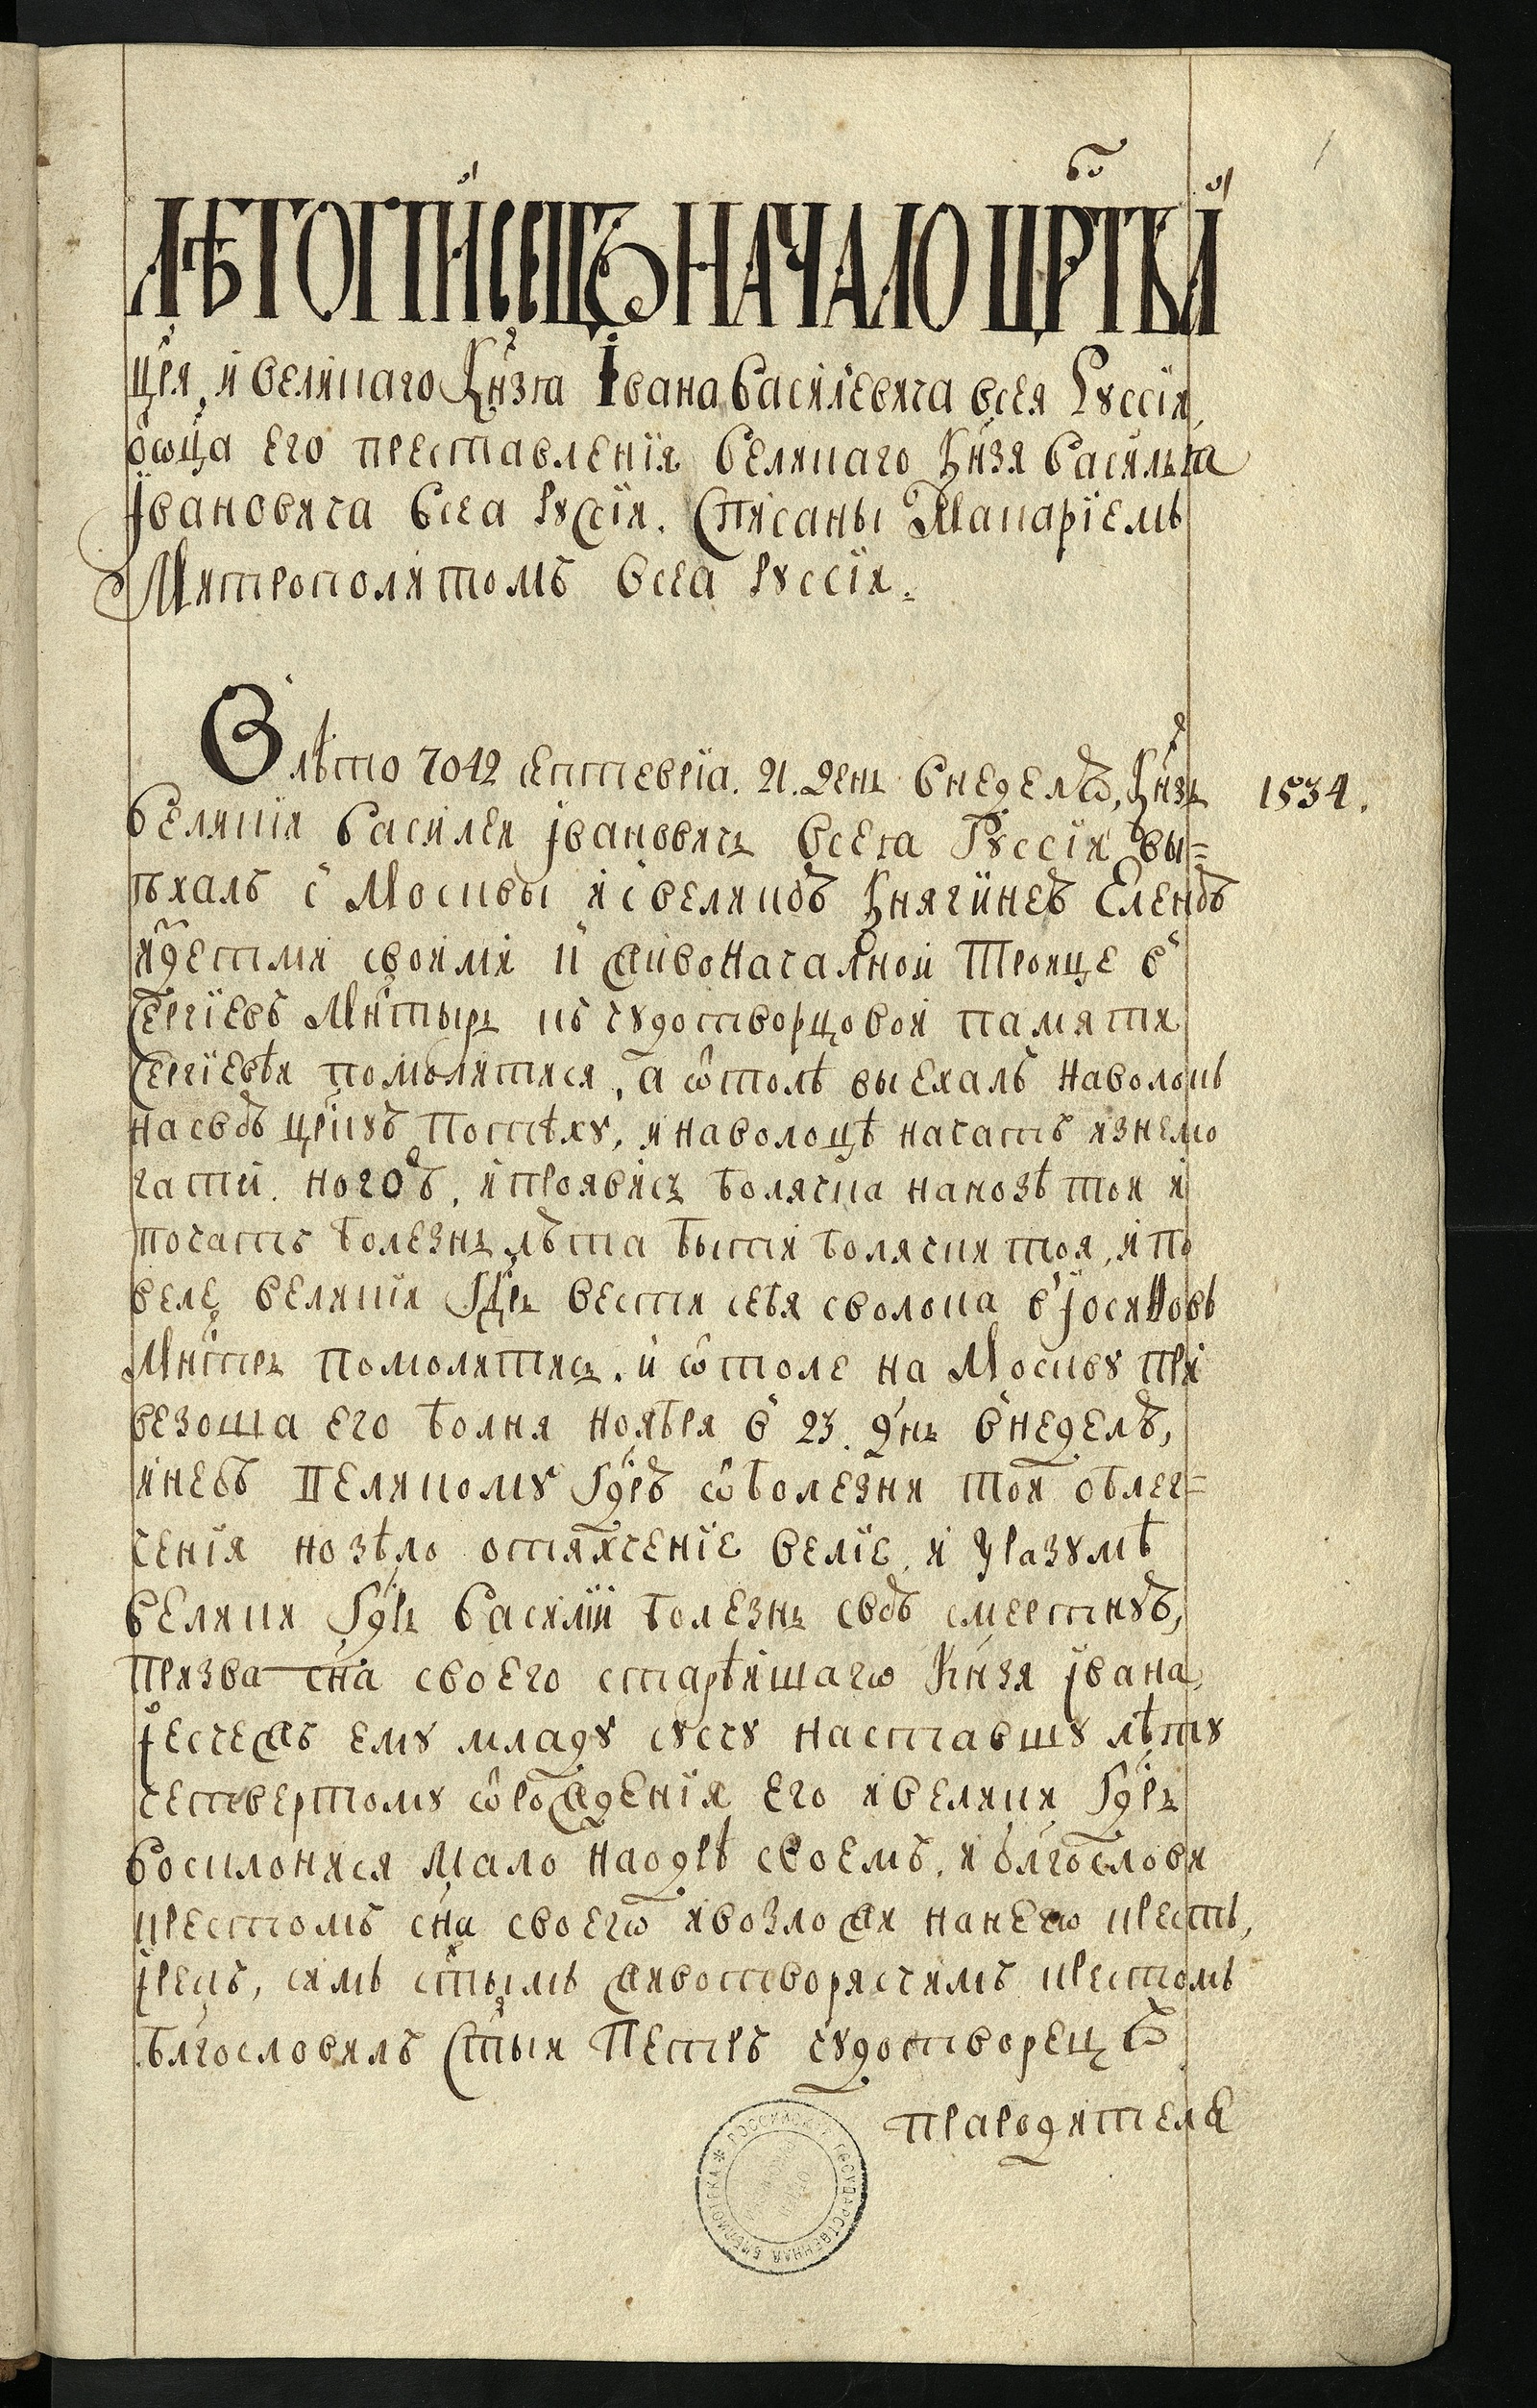 ЛѢТОПИСЕЦЪ НАЧАЛО ЦРТВИ
цря, и великаго Кнзя Iвана Василевича всея Руссiи,
о ѡца его преставленiи великаго Кнзя Василья
Iвановича всеа Руссiи. Списаны Макарiемъ
Митрополитомъ всеа Руссiи.
В лѣто 7042 септеврiа. 21. день в неделю, Кнзь 1534.
великiи Василеи Iвановичь всея Руссiи вы=
ѣхалъ с Москвы и с великою Княгинею Еленою
и з детми своими к живоначалной Троице в
Сергiевъ Мнтырь къ чудотворцовои памяти
Сергiевѣи помолитися, а ѿтолѣ выехалъ на волокъ
на свою црскую потѣху, и на волоцѣ начатъ изнемо
гати. ногою, и проявись болячка на нозѣ тои и
початъ болезнь люта быти болячки тоя, и по
веле великiи Гдрь вести себя с волока в Iосифовъ
Мнтрь помолитись. и ѿтоле на Москву при
везоша его болна ноября в 23. днь в неделю,
и небѣ великому Гдрю ѿ болезни тоя облег=
ченiя но зѣло отягченiе велiе. и Уразумѣ
великии Гдрь Василiй болезнь свою смертную,
призва сна своего старѣишагѡ Кнзя Iвана,
Iесчежъ ему младу сусчу наставшу лѣту
четвертому ѿ рожденiя его и великии Гдрь
восклонися мало на одрѣ своемъ. и блгослови
крестомъ сна своегѡ и возложи на негѡ крестъ,
Iрекъ, симъ стымъ животворясчимъ крестомъ
благословилъ Стыи Петръ чудотворецъ
прародителя
РОССИЙСКАЯ ГОСУДАРСТВЕННАЯ БИБЛИОТЕКА